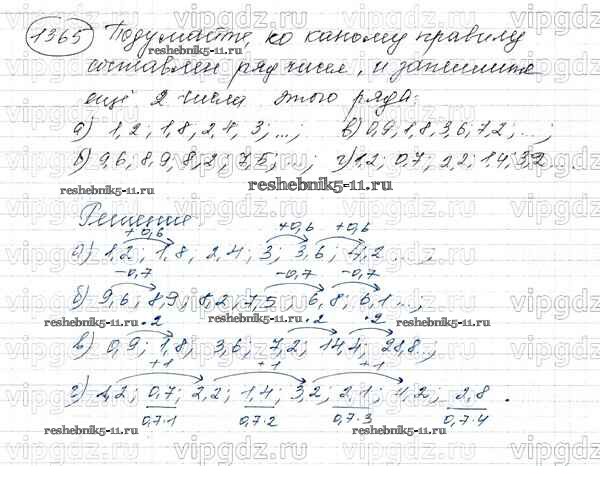 1365 Подумайте, по какому правилу
составлен ряд чисел, и запишите
ещё 2 числа этого ряда:
а) 1,2; 1,8; 2,4; 3; ...; в) 0,9; 1,8; 3,6; 7,2; ...;
б) 9,6; 8,9; 8,2; 7,5; ...; г) 1,2; 0,7; 2,2; 1,4; 3,2
reshebnik5-11.ru
Решение:
+0,6 +0,6 +0,6
а) 1,2; 1,8; 2,4; 3; 3,6; 4,2 ...;
-0,7 -0,7 -0,7
б) 9,6; 8,9; 8,2; 7,5; 6,8; 6,1 ...;
·2 ·2 ·2
в) 0,9; 1,8; 3,6; 7,2; 14,4; 28,8...;
+1 +1 +1
г) 1,2; 0,7; 2,2; 1,4; 3,2; 2,1; 4,2; 2,8.
0,7·1 0,7·2 0,7·3 0,7·4
reshebnik5-11.ru
vipgdz.ru